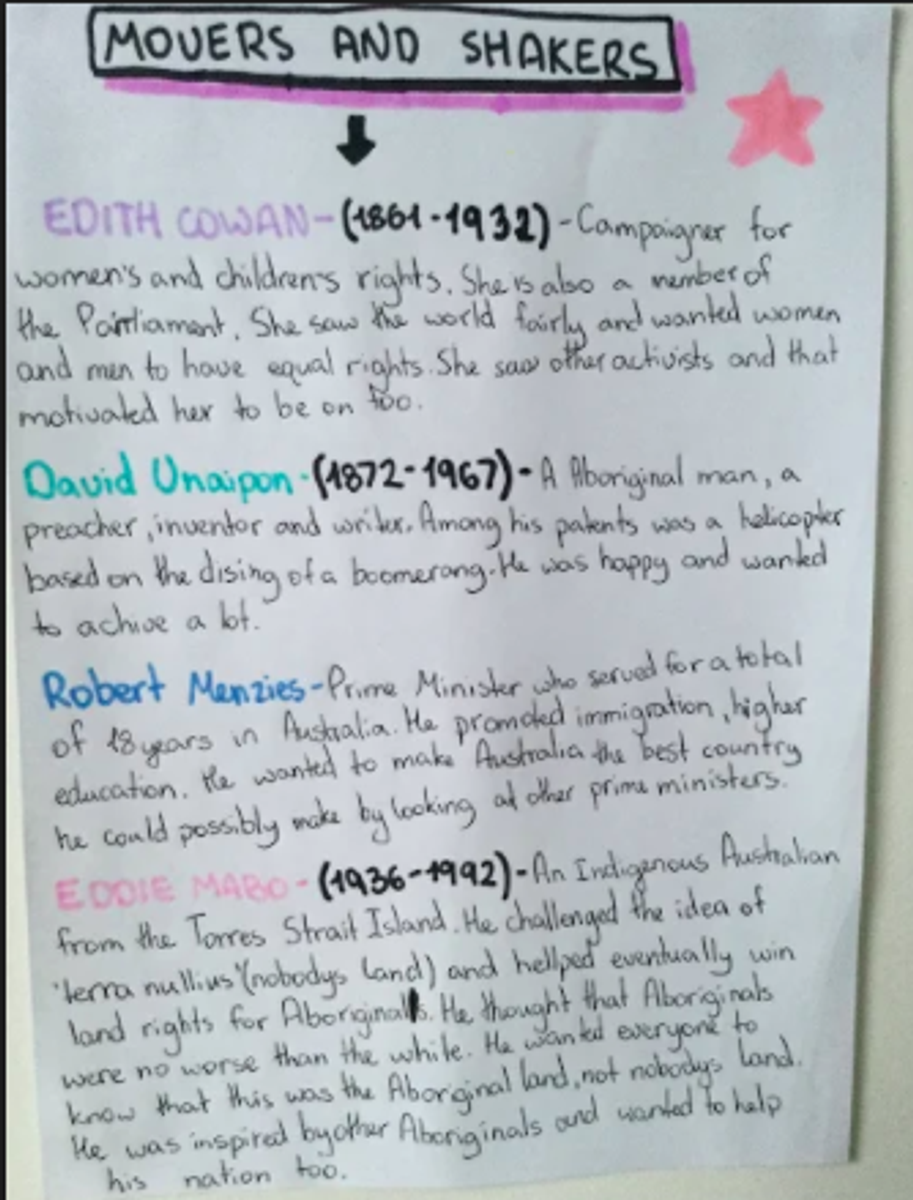 MOVERS AND SHAKERS
EDITH COWAN - (1861-1932) - Campaigner for
women's and children's rights. She is also a member of
the Pairliament. She saw the world fairly and wanted women
and men to have equal rights. She saw other activists and that
motivated her to be on too.
David Unaipon - (1872-1967) - A Aboriginal man, a
preacher, inventor and writer. Among his patents was a helicopter
based on the dising of a boomerang. He was happy and wanted
to achive a lot.
Robert Menzies - Prime Minister who served for a total
of 18 years in Australia. He promoted immigration, higher
education. He wanted to make Australia the best country
he could possibly make by looking at other prime ministers.
EDDIE MABO - (1936-1992) - An Indigenous Australian
from the Torres Strait Island. He challenged the idea of
'terra nullius' (nobodys land) and hellped eventually win
land rights for Aboriginals. He thought that Aboriginals
were no worse than the white. He wanted everyone to
know that this was the Aboriginal land, not nobodys land.
He was inspired by other Aboriginals and wanted to help
his nation too.